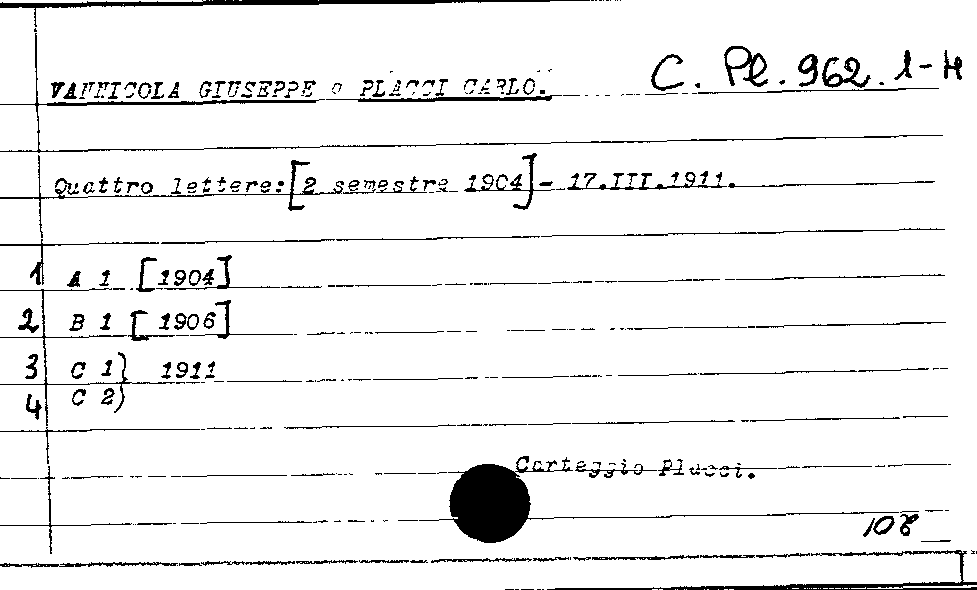 C. Pl. 962. 1-4
VANNICOLA GIUSEPPE a PLACCI CARLO.
Quattro lettere: [2 semestre 1904] - 17.III.1911.
1 A 1 [1904]
2 B 1 [1906]
3 C 1) 1911
4 C 2)
Carteggio Placci.
108